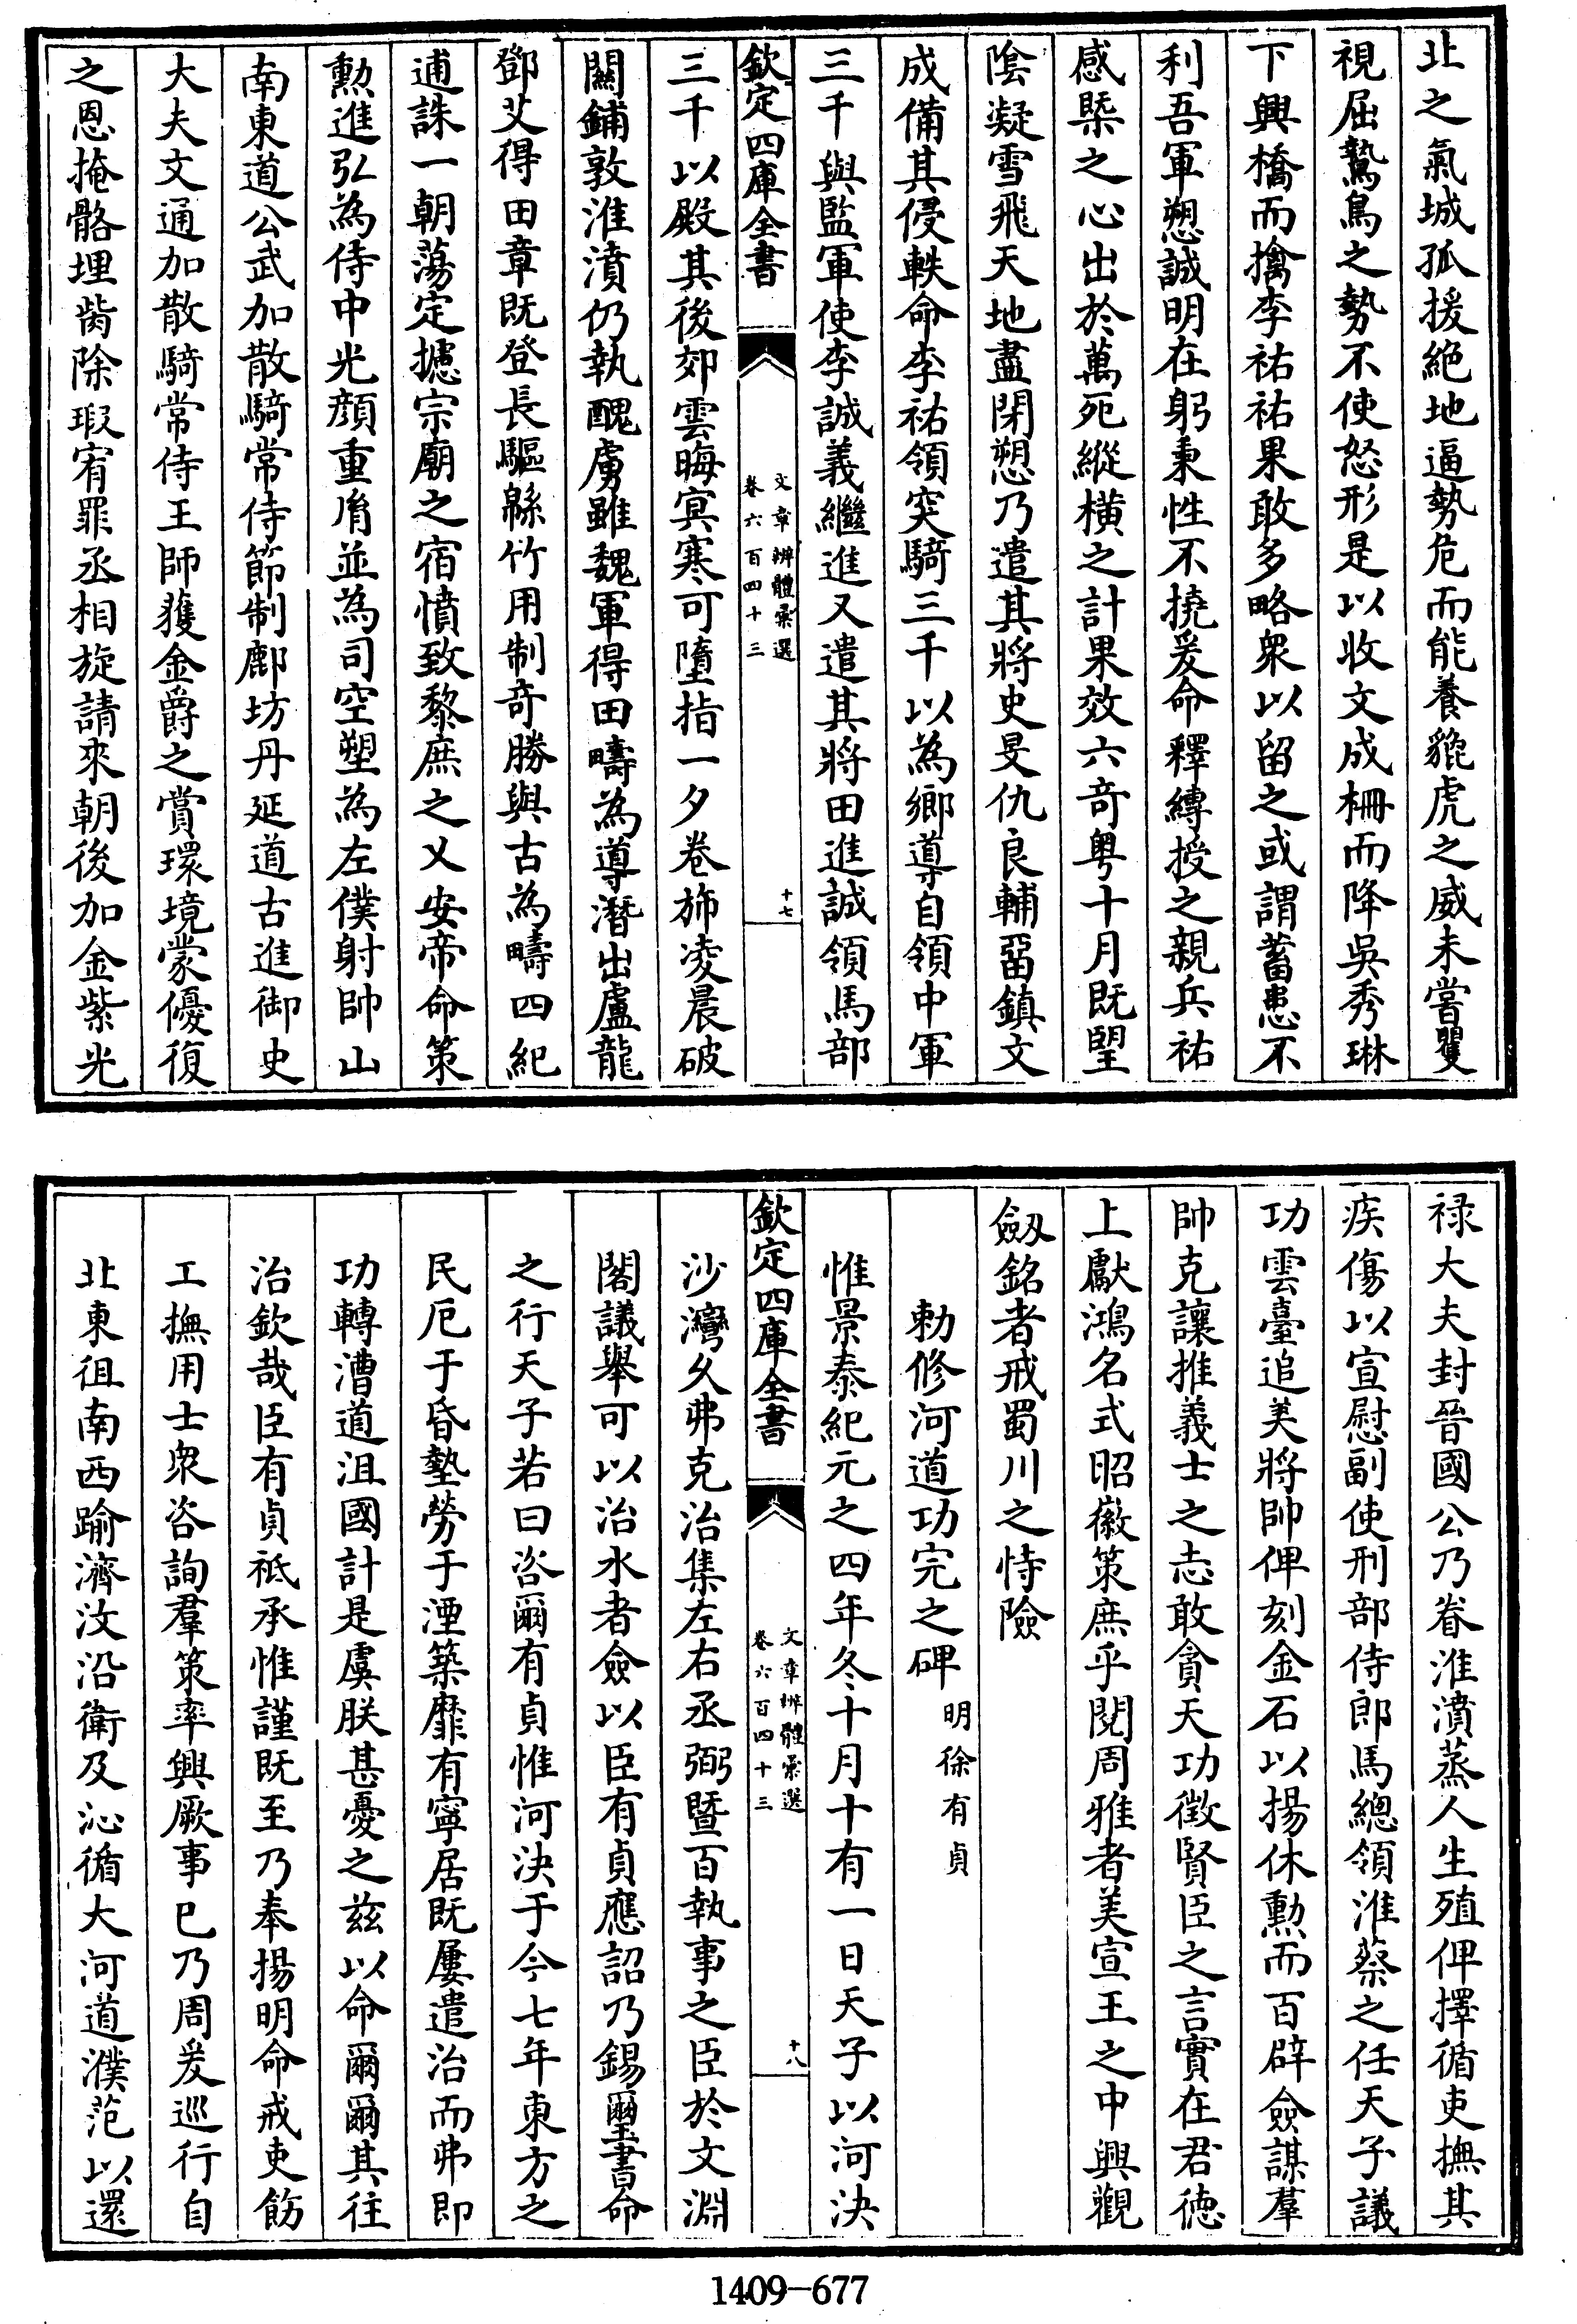 北之氣城孤援絕地逼勢危而能養貔虎之威未嘗矍
視屈鷙鳥之勢不使怒形是以收文成柵而降吳秀琳
下興橋而擒李祐祐果敢多略衆以留之或謂蓄患不
利吾軍愬誠明在躬秉性不撓爰命釋縛授之親兵祐
感槩之心出於萬死縱橫之計果效六奇粤十月既望
陰凝雪飛天地盡閉愬乃遣其將史旻仇良輔留鎮文
成備其侵軼命李祐領突騎三千以為鄉導自領中軍
三千與監軍使李誠義繼進又遣其將田進誠領馬部
欽定四庫全書
文章辨體彙選
卷六百四十三
十七
三千以殿其後郊雲晦冥寒可墮指一夕卷斾凌晨破
關鋪敦淮濆仍執醜虜雖魏軍得田疇為導潛出盧龍
鄧艾得田章既登長驅緜竹用制奇勝與古為疇四紀
逋誅一朝蕩定攄宗廟之宿憤致黎庶之乂安帝命策
勲進弘為侍中光顔重胤並為司空愬為左僕射帥山
南東道公武加散騎常侍節制鄜坊丹延道古進御史
大夫文通加散騎常侍王師獲金爵之賞環境蒙優復
之恩掩骼埋胔除瑕宥罪丞相旋請來朝後加金紫光
禄大夫封晉國公乃眷淮濆蒸人生殖俾擇循吏撫其
疾傷以宣慰副使刑部侍郎馬總領淮蔡之任天子議
功雲臺追美將帥俾刻金石以揚休勲而百辟僉謀羣
帥克讓推義士之志敢貪天功徵賢臣之言實在君徳
上獻鴻名式昭徽策庶乎閱周雅者美宣王之中興觀
劔銘者戒蜀川之恃險
勅修河道功完之碑 明徐有貞
惟景泰紀元之四年冬十月十有一日天子以河決
欽定四庫全書
文章辨體彙選
卷六百四十三
十八
沙灣久弗克治集左右丞弼暨百執事之臣於文淵
閣議舉可以治水者僉以臣有貞應詔乃錫璽書命
之行天子若曰咨爾有貞惟河決于今七年東方之
民厄于昏墊勞于湮築靡有寧居既屢遣治而弗即
功轉漕道沮國計是虞朕甚憂之兹以命爾爾其往
治欽哉臣有貞祗承惟謹既至乃奉揚明命戒吏飭
工撫用士衆咨詢羣策率興厥事已乃周爰巡行自
北東徂南西踰濟汶沿衛及沁循大河道濮范以還
1409-677